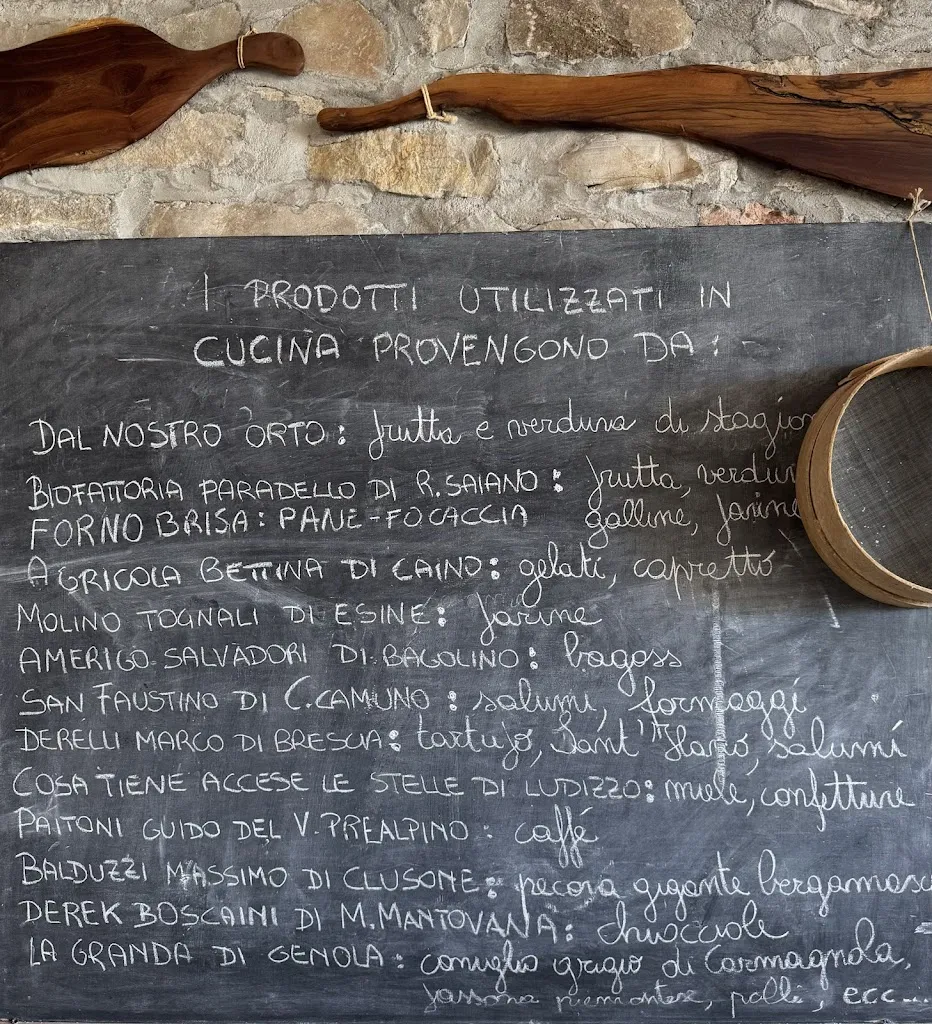 I PRODOTTI UTILIZZATI IN
CUCINA PROVENGONO DA:
DAL NOSTRO ORTO: frutta e verdura di stagion
BIOFATTORIA PARADELLO DI R.SAIANO: frutta, verdur
FORNO BRISA: PANE-FOCACCIA galline, farine
AGRICOLA BETTINA DI CAINO: gelati, capretto
MOLINO TOGNALI DI ESINE: farine
AMERIGO SALVADORI DI BAGOLINO: bagoss
SAN FAUSTINO DI C.CAMUNO: salumi, formaggi
DERELLI MARCO DI BRESCIA: tartufo, Sant'Ilario, salumi
COSA TIENE ACCESE LE STELLE DI LUDIZZO: miele, confetture
PAITONI GUIDO DEL V.PREALPINO: caffé
BALDUZZI MASSIMO DI CLUSONE: pecora gigante bergamasc
DEREK BOSCAINI DI M.MANTOVANA: chiocciole
LA GRANDA DI GENOLA: coniglio grigio di Carmagnola,
fassona piemontese, polli, ecc...